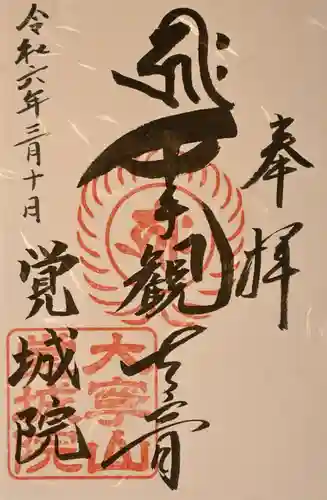 奉拝
千手観世音
覚城院
令和六年三月十日
大寧山
覚城院